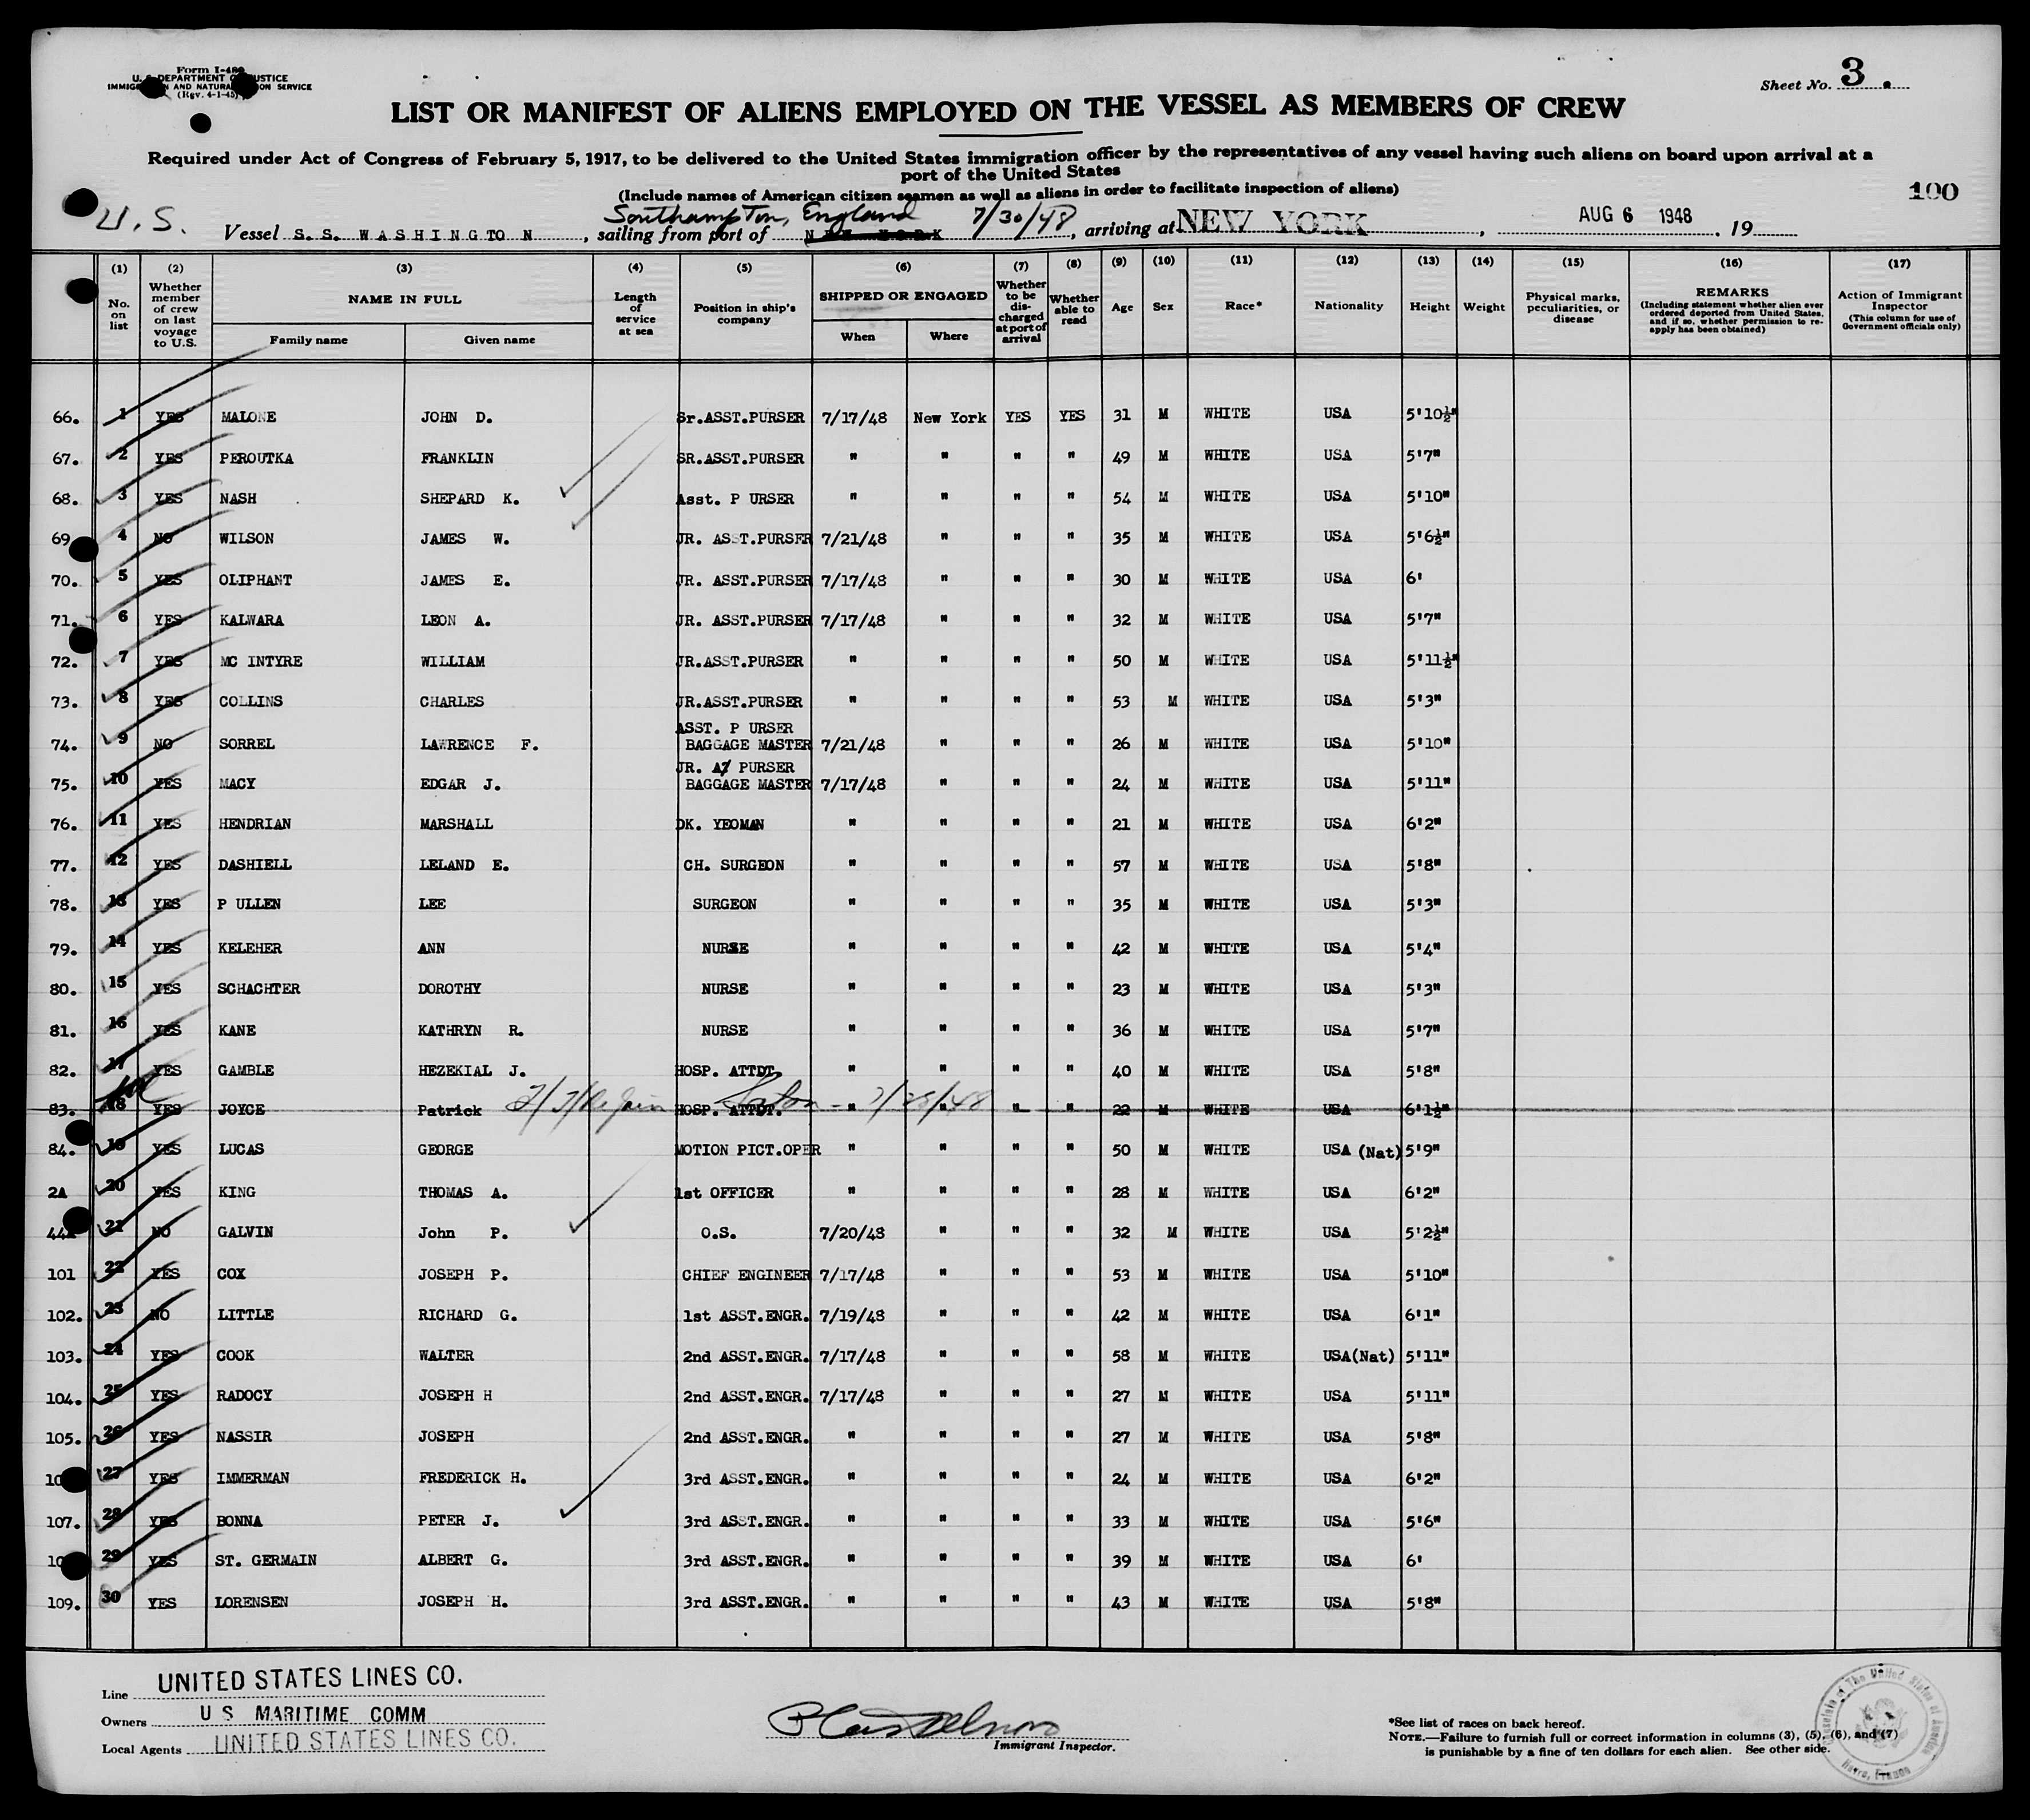 Form I-480
U. S. DEPARTMENT OF JUSTICE
IMMIGRATION AND NATURALIZATION SERVICE
(Rev. 4-1-45)
Sheet No. 3.
LIST OR MANIFEST OF ALIENS EMPLOYED ON THE VESSEL AS MEMBERS OF CREW
Required under Act of Congress of February 5, 1917, to be delivered to the United States immigration officer by the representatives of any vessel having such aliens on board upon arrival at a
port of the United States
(Include names of American citizen seamen as well as aliens in order to facilitate inspection of aliens)
100
U.S. Southampton, England 7/30/48 AUG 6 1948
Vessel S. S. WASHINGTON, sailing from port of NEW YORK, arriving at NEW YORK, 19
(1) (2) (3) (4) (5) (6) (7) (8) (9) (10) (11) (12) (13) (14) (15) (16) (17)
No. on list
Whether member of crew on last voyage to U.S.
NAME IN FULL
Family name Given name
Length of service at sea
Position in ship's company
SHIPPED OR ENGAGED
When Where
Whether to be discharged at port of arrival
Whether able to read
Age Sex Race* Nationality Height Weight
Physical marks, peculiarities, or disease
REMARKS
(Including statement whether alien ever ordered deported from United States, and if so, whether permission to reapply has been obtained)
Action of Immigrant Inspector
(This column for use of Government officials only)
66. 1 YES MALONE JOHN D. Sr.ASST.PURSER 7/17/48 New York YES YES 31 M WHITE USA 5'10½"
67. 2 YES PEROUTKA FRANKLIN SR.ASST.PURSER " " " " 49 M WHITE USA 5'7"
68. 3 YES NASH SHEPARD K. Asst. P URSER " " " " 54 M WHITE USA 5'10"
69 4 NO WILSON JAMES W. JR. ASST.PURSER 7/21/48 " " " 35 M WHITE USA 5'6½"
70. 5 YES OLIPHANT JAMES E. JR. ASST.PURSER 7/17/48 " " " 30 M WHITE USA 6'
71. 6 YES KALWARA LEON A. JR. ASST.PURSER 7/17/48 " " " 32 M WHITE USA 5'7"
72. 7 YES MC INTYRE WILLIAM JR.ASST.PURSER " " " " 50 M WHITE USA 5'11½"
73. 8 YES COLLINS CHARLES JR.ASST.PURSER " " " " 53 M WHITE USA 5'3"
ASST. P URSER
74. 9 NO SORREL LAWRENCE F. BAGGAGE MASTER 7/21/48 " " " 26 M WHITE USA 5'10"
JR. A/ PURSER
75. 10 YES MACY EDGAR J. BAGGAGE MASTER 7/17/48 " " " 24 M WHITE USA 5'11"
76. 11 YES HENDRIAN MARSHALL DK. YEOMAN " " " " 21 M WHITE USA 6'2"
77. 12 YES DASHIELL LELAND E. CH. SURGEON " " " " 57 M WHITE USA 5'8"
78. 13 YES P ULLEN LEE SURGEON " " " " 35 M WHITE USA 5'3"
79. 14 YES KELEHER ANN NURSE " " " " 42 M WHITE USA 5'4"
80. 15 YES SCHACHTER DOROTHY NURSE " " " " 23 M WHITE USA 5'3"
81. 16 YES KANE KATHRYN R. NURSE " " " " 36 M WHITE USA 5'7"
82. 17 YES GAMBLE HEZEKIAL J. HOSP. ATTDT. " " " " 40 M WHITE USA 5'8"
83. 18 YES JOYCE Patrick HOSP. ATTDT. 7/28/48 " " " " 22 M WHITE USA 6'1½"
84. 19 YES LUCAS GEORGE MOTION PICT.OPER " " " " 50 M WHITE USA (Nat) 5'9"
2A 20 YES KING THOMAS A. 1st OFFICER " " " " 28 M WHITE USA 6'2"
44A 21 NO GALVIN John P. O.S. 7/20/48 " " " 32 M WHITE USA 5'2½"
101 22 YES COX JOSEPH P. CHIEF ENGINEER 7/17/48 " " " 53 M WHITE USA 5'10"
102. 23 NO LITTLE RICHARD G. 1st ASST.ENGR. 7/19/48 " " " 42 M WHITE USA 6'1"
103. 24 YES COOK WALTER 2nd ASST.ENGR. 7/17/48 " " " 58 M WHITE USA(Nat) 5'11"
104. 25 YES RADOCY JOSEPH H 2nd ASST.ENGR. 7/17/48 " " " 27 M WHITE USA 5'11"
105. 26 YES NASSIR JOSEPH 2nd ASST.ENGR. " " " " 27 M WHITE USA 5'8"
10 27 YES IMMERMAN FREDERICK H. 3rd ASST.ENGR. " " " " 24 M WHITE USA 6'2"
107. 28 YES BONNA PETER J. 3rd ASST.ENGR. " " " " 33 M WHITE USA 5'6"
10 29 YES ST. GERMAIN ALBERT G. 3rd ASST.ENGR. " " " " 39 M WHITE USA 6'
109. 30 YES LORENSEN JOSEPH H. 3rd ASST.ENGR. " " " " 43 M WHITE USA 5'8"
Line UNITED STATES LINES CO.
Owners U S MARITIME COMM
Local Agents UNITED STATES LINES CO.
Immigrant Inspector.
*See list of races on back hereof.
NOTE.—Failure to furnish full or correct information in columns (3), (5), (6), and (7)
is punishable by a fine of ten dollars for each alien. See other side.
Consulate of The United States of America
Havre, France